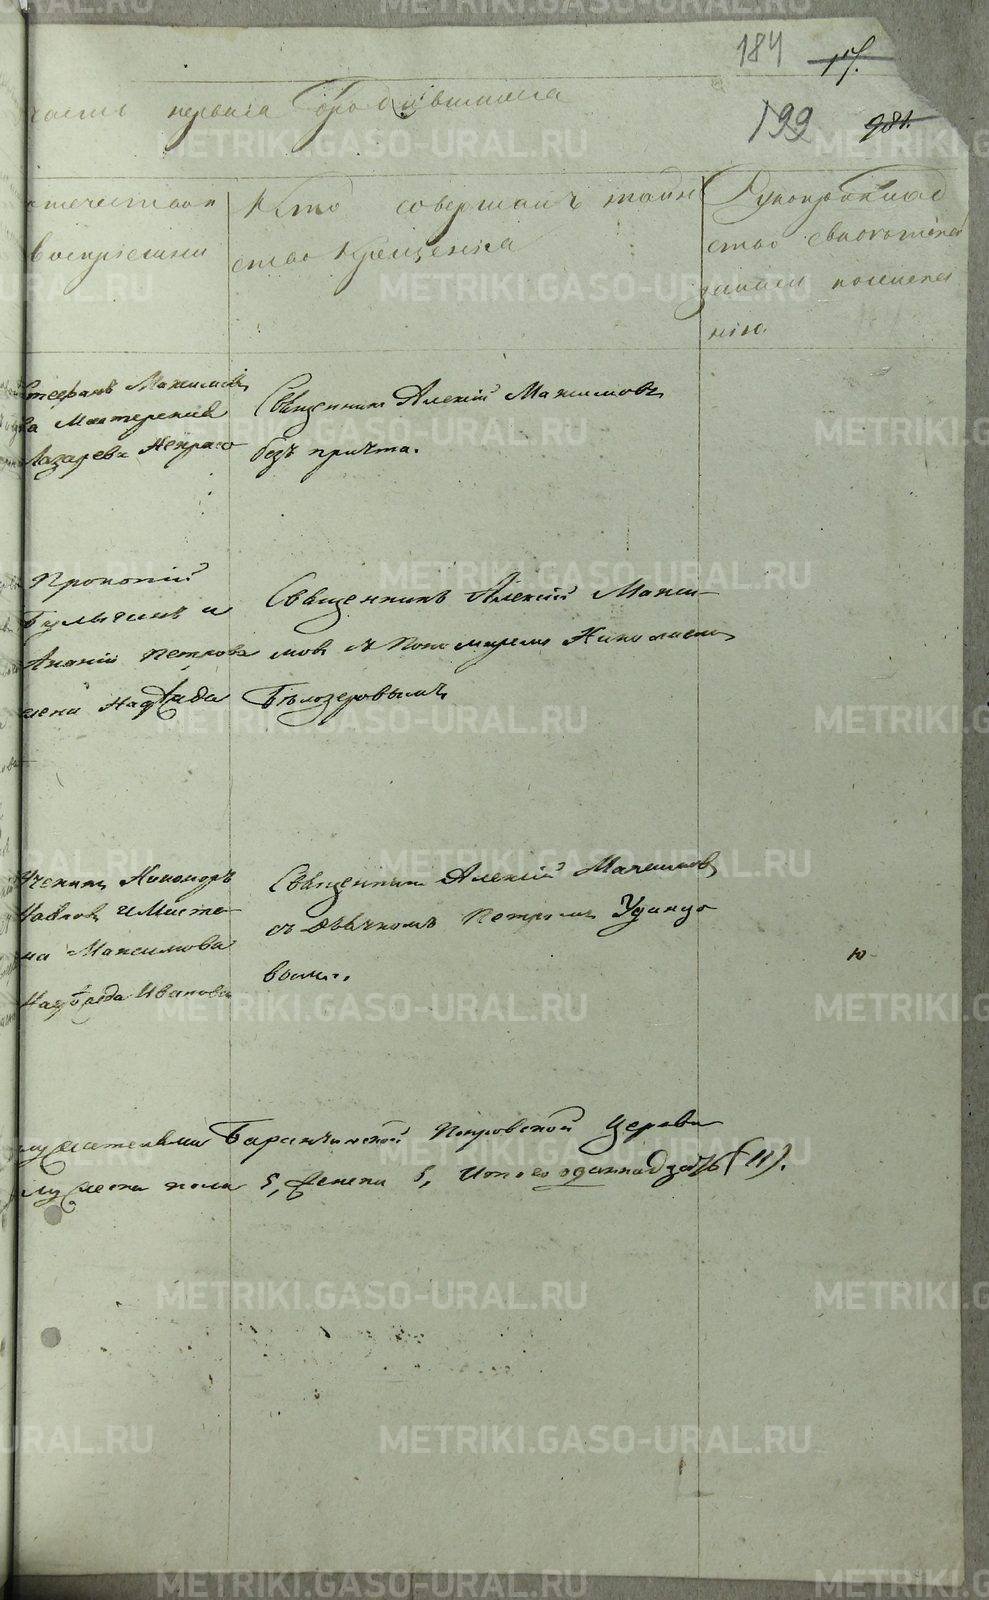 184 17.
часть первая о родившихся
199 981.
отчество и
восприемни
Кто совершалъ таин
ство крещенія
Рукоприклад
ство свидѣтелей
записи по желанію
нію.
Стефанъ Максимовъ
Мастерскій
Лазарева Некрасо
Священникъ Алексій Максимовъ
безъ причта.
Прокопій
и
Ананій Петровъ
жена Надежда
Священникъ Алексій Макси-
мовъ съ Пономаремъ Николаемъ
Бѣлозеровымъ
Никаноръ
Павловъ и Масте-
Максимова
Надежда Иванова
Священникъ Алексій Максимовъ
съ Дьячкомъ Петромъ Удинцо
вымъ.
ю
Баранчинской Покровской церкви
мужеска пола 5, женска 5, Итого одиннадцать (11).
METRIKI.GASO-URAL.RU